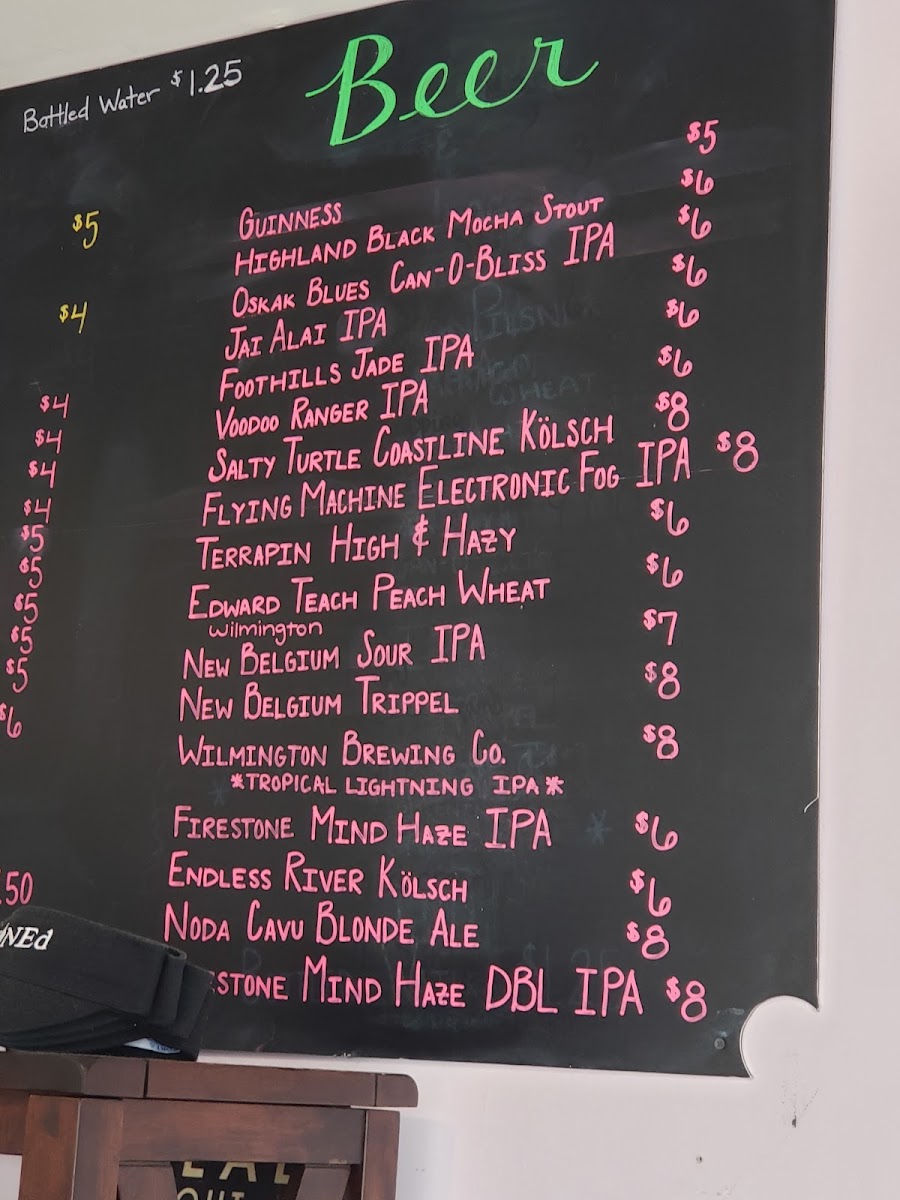 Bottled Water $1.25
Beer
$5
$4
$4
$4
$4
$4
$5
$5
$5
$5
$5
$6
.50
GUINNESS $5
HIGHLAND BLACK MOCHA STOUT $6
OSKAR BLUES CAN-O-BLISS IPA $6
JAI ALAI IPA $6
FOOTHILLS JADE IPA $6
VOODOO RANGER IPA $6
SALTY TURTLE COASTLINE KÖLSCH $8
FLYING MACHINE ELECTRONIC FOG IPA $8
TERRAPIN HIGH & HAZY $6
EDWARD TEACH PEACH WHEAT $6
Wilmington
NEW BELGIUM SOUR IPA $7
NEW BELGIUM TRIPPEL $8
WILMINGTON BREWING CO. $8
*TROPICAL LIGHTNING IPA*
FIRESTONE MIND HAZE IPA $6
ENDLESS RIVER KÖLSCH $6
NODA CAVU BLONDE ALE $8
ESTONE MIND HAZE DBL IPA $8
NEd